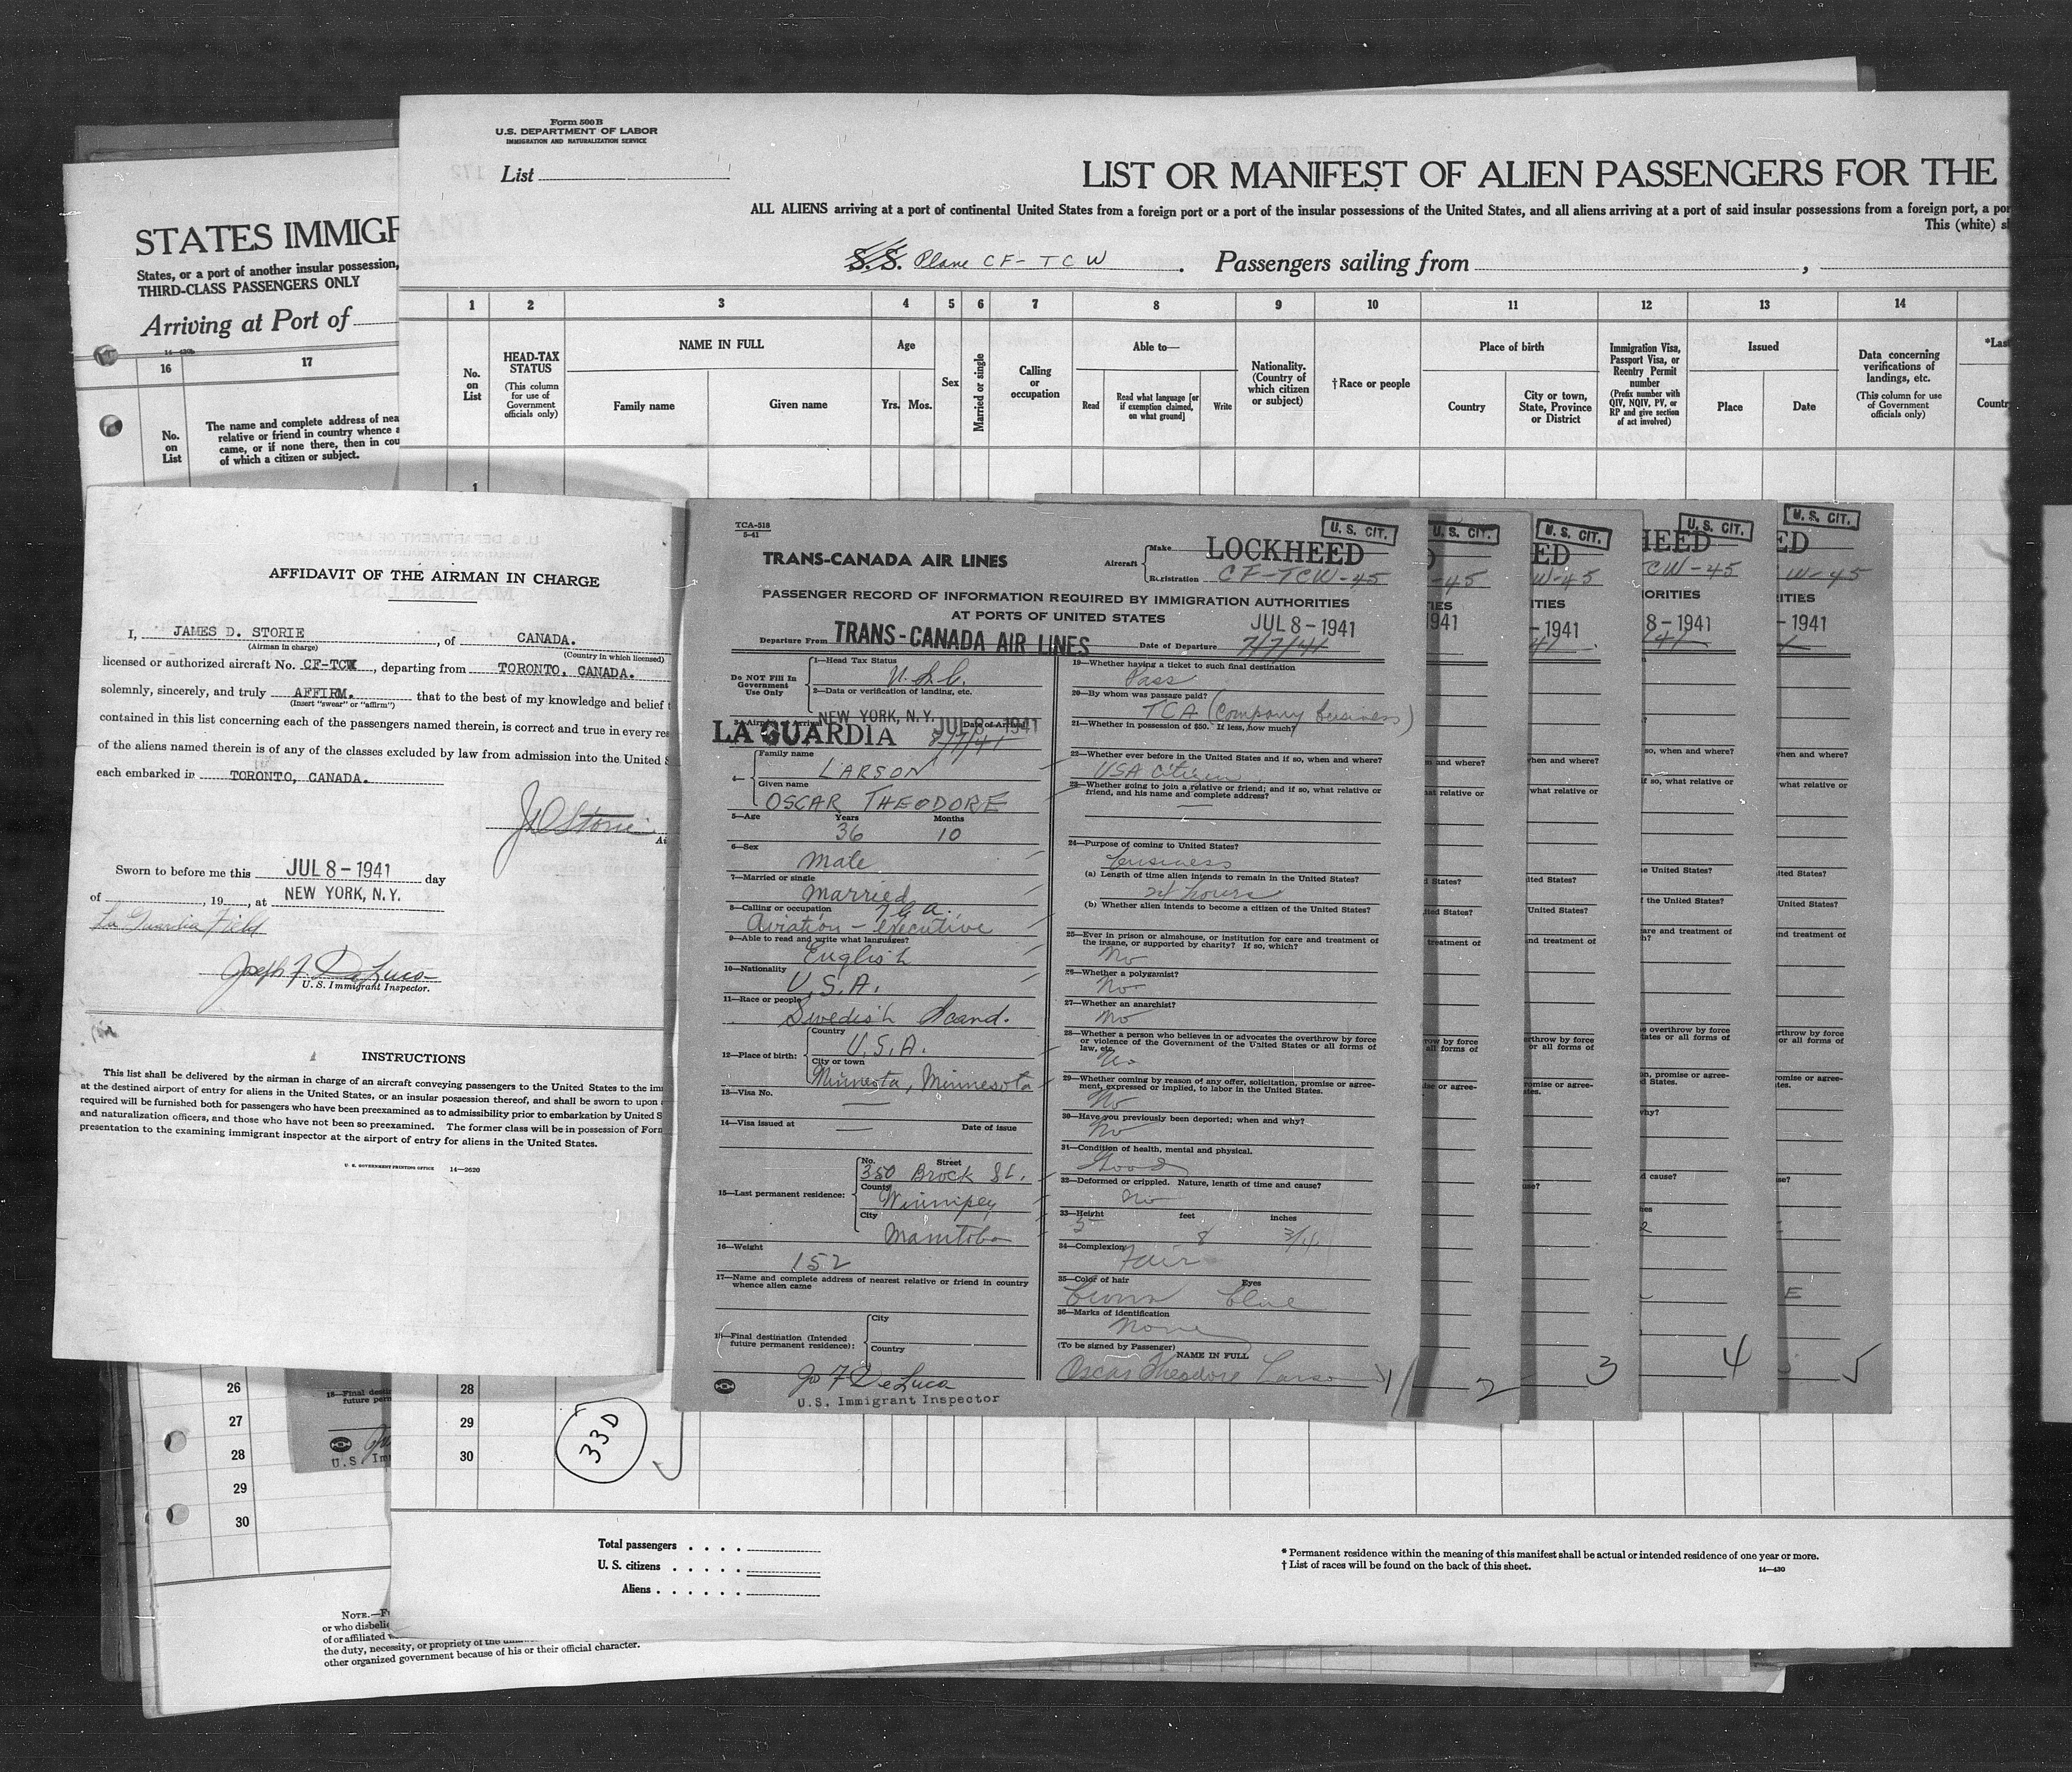 Form 500 B
U.S. DEPARTMENT OF LABOR
IMMIGRATION AND NATURALIZATION SERVICE
List
172
LIST OR MANIFEST OF ALIEN PASSENGERS FOR THE
ALL ALIENS arriving at a port of continental United States from a foreign port or a port of the insular possessions of the United States, and all aliens arriving at a port of said insular possessions from a foreign port, a por
This (white) sh
S.S. Plane CF-TCW . Passengers sailing from ,
STATES IMMIGR
States, or a port of another insular possession,
THIRD-CLASS PASSENGERS ONLY
Arriving at Port of
14-430b
16 17
No. on List
The name and complete address of nea
relative or friend in country whence a
came, or if none there, then in cou
of which a citizen or subject.
1 2 3 4 5 6 7 8 9 10 11 12 13 14
No. on List
HEAD-TAX STATUS
(This column for use of Government officials only)
NAME IN FULL
Family name Given name
Age
Yrs. Mos.
Sex
Married or single
Calling or occupation
Able to—
Read
Read what language [or if exemption claimed, on what ground]
Write
Nationality. (Country of which citizen or subject)
† Race or people
Place of birth
Country
City or town, State, Province or District
Immigration Visa, Passport Visa, or Reentry Permit number
(Prefix number with QIV, NQIV, PV, or RP and give section of act involved)
Issued
Place Date
Data concerning verifications of landings, etc.
(This column for use of Government officials only)
*Las
Countr
1
AFFIDAVIT OF THE AIRMAN IN CHARGE
I, JAMES D. STORIE , of CANADA.
(Airman in charge) (Country in which licensed)
licensed or authorized aircraft No. CF-TCW , departing from TORONTO, CANADA.
solemnly, sincerely, and truly AFFIRM. that to the best of my knowledge and belief t
(Insert "swear" or "affirm")
contained in this list concerning each of the passengers named therein, is correct and true in every res
of the aliens named therein is of any of the classes excluded by law from admission into the United S
each embarked in TORONTO, CANADA.
J D Storie
Ai
Sworn to before me this JUL 8-1941 day
of , 19 , at NEW YORK, N.Y.
La Guardia Field
Joseph F. DeLuca
U.S. Immigrant Inspector.
INSTRUCTIONS
This list shall be delivered by the airman in charge of an aircraft conveying passengers to the United States to the imm
at the destined airport of entry for aliens in the United States, or an insular possession thereof, and shall be sworn to upon
required will be furnished both for passengers who have been preexamined as to admissibility prior to embarkation by United S
and naturalization officers, and those who have not been so preexamined. The former class will be in possession of Form
presentation to the examining immigrant inspector at the airport of entry for aliens in the United States.
U. S. GOVERNMENT PRINTING OFFICE 14-2620
TCA-518
5-41
TRANS-CANADA AIR LINES
Aircraft
Make LOCKHEED
Registration CF-TCW-45
U. S. CIT.
PASSENGER RECORD OF INFORMATION REQUIRED BY IMMIGRATION AUTHORITIES
AT PORTS OF UNITED STATES
JUL 8-1941
Departure From TRANS-CANADA AIR LINES Date of Departure 7/7/41
Do NOT Fill In Government Use Only
1—Head Tax Status
2—Data or verification of landing, etc.
NEW YORK, N.Y. JUL 8-1941
Date of Arrival
LA GUARDIA 8/7/41
4—
Family name
LARSON
Given name
OSCAR THEODORE
5—Age Years Months
36 10
6—Sex
Male
7—Married or single
Married
8—Calling or occupation T.C.A.
Aviation - executive
9—Able to read and write what languages?
English
10—Nationality
U.S.A.
11—Race or people
Swedish Scand.
12—Place of birth:
Country
U.S.A.
City or town
Minneota, Minnesota
13—Visa No.
14—Visa issued at Date of issue
15—Last permanent residence:
No. Street
350 Brock St.
County
Winnipeg
City
Manitoba
16—Weight
152
17—Name and complete address of nearest relative or friend in country
whence alien came
18—Final destination (Intended
future permanent residence):
City
Country
Jo F DeLuca
U.S. Immigrant Inspector
19—Whether having a ticket to such final destination
Pass
20—By whom was passage paid?
TCA (Company business)
21—Whether in possession of $50. If less, how much?
22—Whether ever before in the United States and if so, when and where?
USA Citizen
23—Whether going to join a relative or friend; and if so, what relative or
friend, and his name and complete address?
24—Purpose of coming to United States?
business
(a) Length of time alien intends to remain in the United States?
24 hours
(b) Whether alien intends to become a citizen of the United States?
25—Ever in prison or almshouse, or institution for care and treatment of
the insane, or supported by charity? If so, which?
No
26—Whether a polygamist?
No
27—Whether an anarchist?
No
28—Whether a person who believes in or advocates the overthrow by force
or violence of the Government of the United States or all forms of
law, etc.
No
29—Whether coming by reason of any offer, solicitation, promise or agree-
ment, expressed or implied, to labor in the United States?
No
30—Have you previously been deported; when and why?
No
31—Condition of health, mental and physical.
Good
32—Deformed or crippled. Nature, length of time and cause?
No
33—Height feet inches
5 8 3/4
34—Complexion
Fair
35—Color of hair Eyes
brown blue
36—Marks of identification
None
(To be signed by Passenger)
NAME IN FULL
Oscar Theodore Larson
1 2 3 4 5
26
27
28
29
30
28
29
30
33D
Total passengers
U. S. citizens
Aliens
* Permanent residence within the meaning of this manifest shall be actual or intended residence of one year or more.
† List of races will be found on the back of this sheet.
14-430
NOTE.—F
or who disbelie
of or affiliated w
the duty, necessity, or propriety of the
other organized government because of his or their official character.